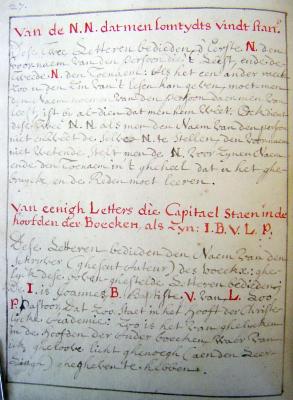 27.
Van de N.N. datmen somtydts vindt staen.
Dese twee Letteren bedieden, d'eerste N. den
voornaem van den Persoon die't Leest, ende de
tweede N. den Toenaem: Als het een ander
soo u den sin van't lesen kan geven, moet men
den Naem noemen van den persoon daer men van
leest,
dese twee N.N. als men den Naem van den persoon
niet en weet de selve N. te stellen, den voornaem
niet wetende, stelt men de N. voor synen Naem
ende den Toenaem in't geheel dat u het ghe-
bruyck ende de Reden moet leeren.
Van eenigh Letters die Capitael Staen in de
hoofden der Boecken, als Zyn: I.B.V.L.P.
Dese Letteren bedieden den Naem van den
schryver (gheseyt Auteur) des boeckx: ghe-
lyck dese boven ghestelde Letteren bedieden,
de I. is Joannes B. Baptiste V. van L. Loo
P. Pastoor, dat soo staet in het hooft der Christe-
lycke Academie: Soo is het van ghelycken
in de hoofden der ander boecken, waer van
ick gheloove licht ghenoegh (aen den Leer-
Lingh) ghegheven te hebben.